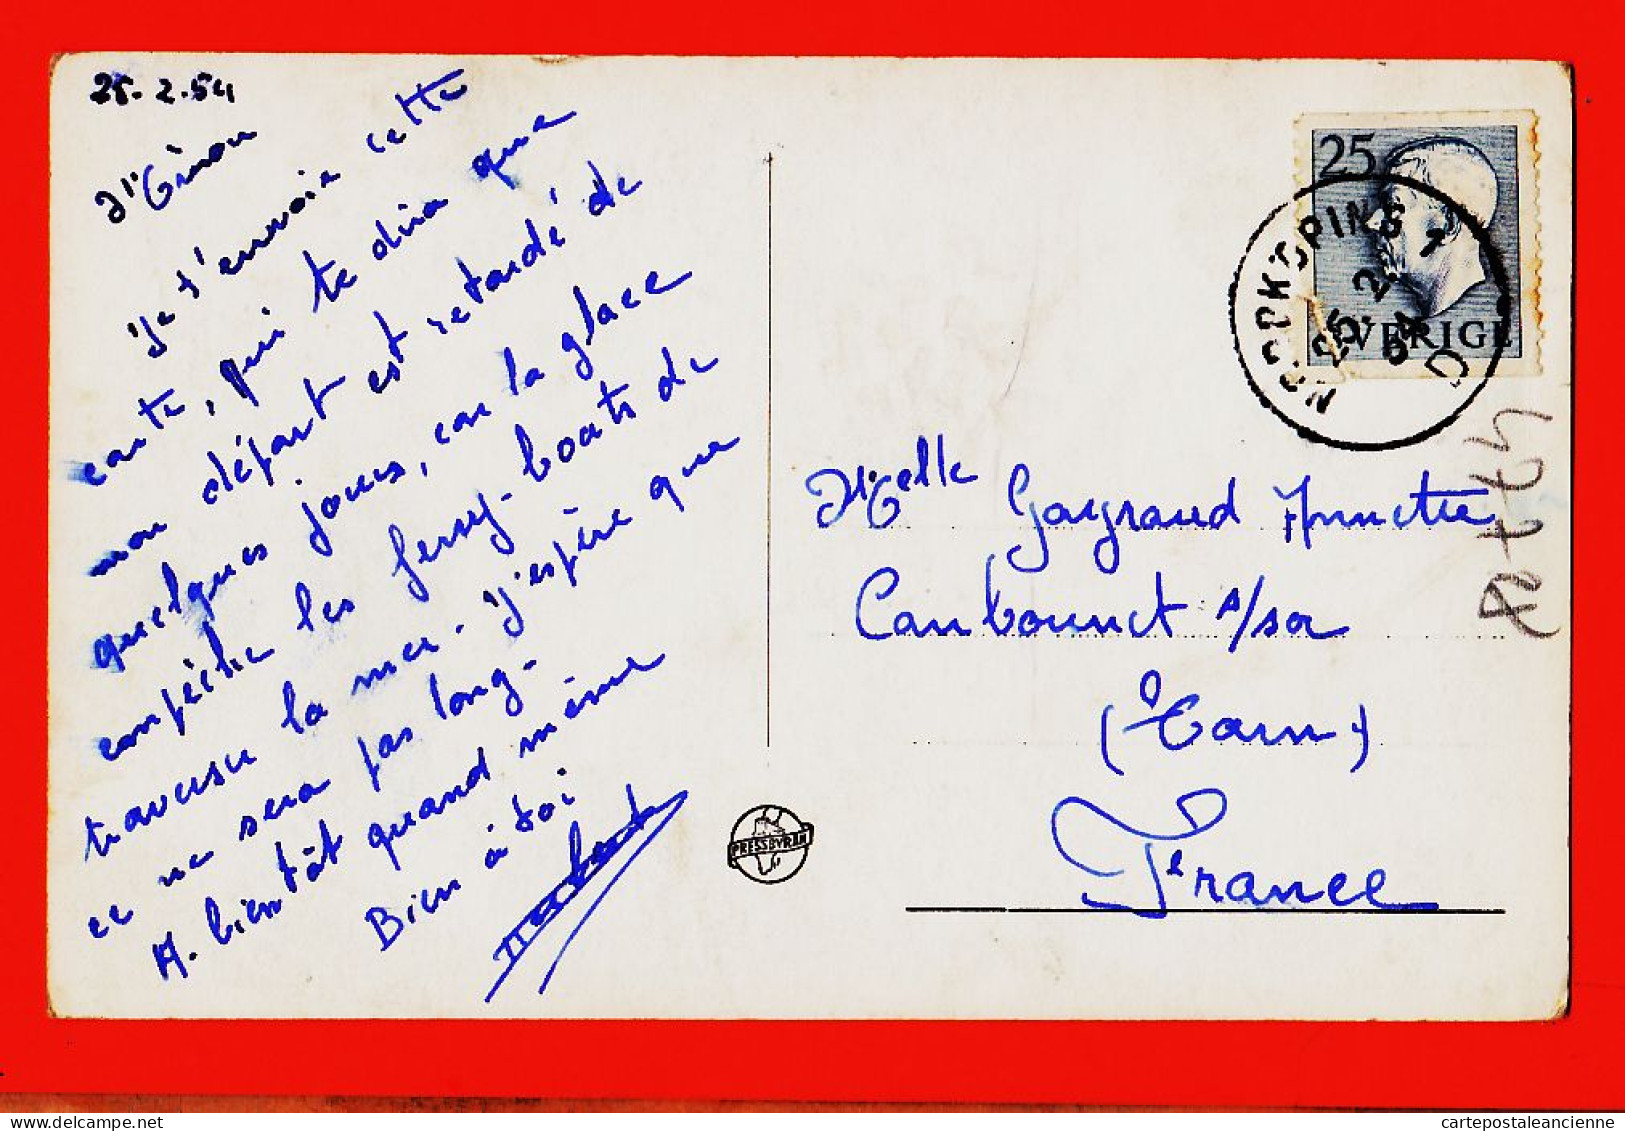 25.2.54
Je t'envoie cette
carte, qui te dira que
mon départ est retardé de
quelques jours, car la glace
empêche les ferry-boats de
traverser la mer. J'espère que
ce ne sera pas long.
A bientôt quand même
Bien à toi
25
SVERIGE
NORRKÖPING 1
25.2.
54
D
Melle Gayraud Annette
Cambounet s/sor
(Tarn)
France
PRESSBYRÅN
cartepostaleancienne.com